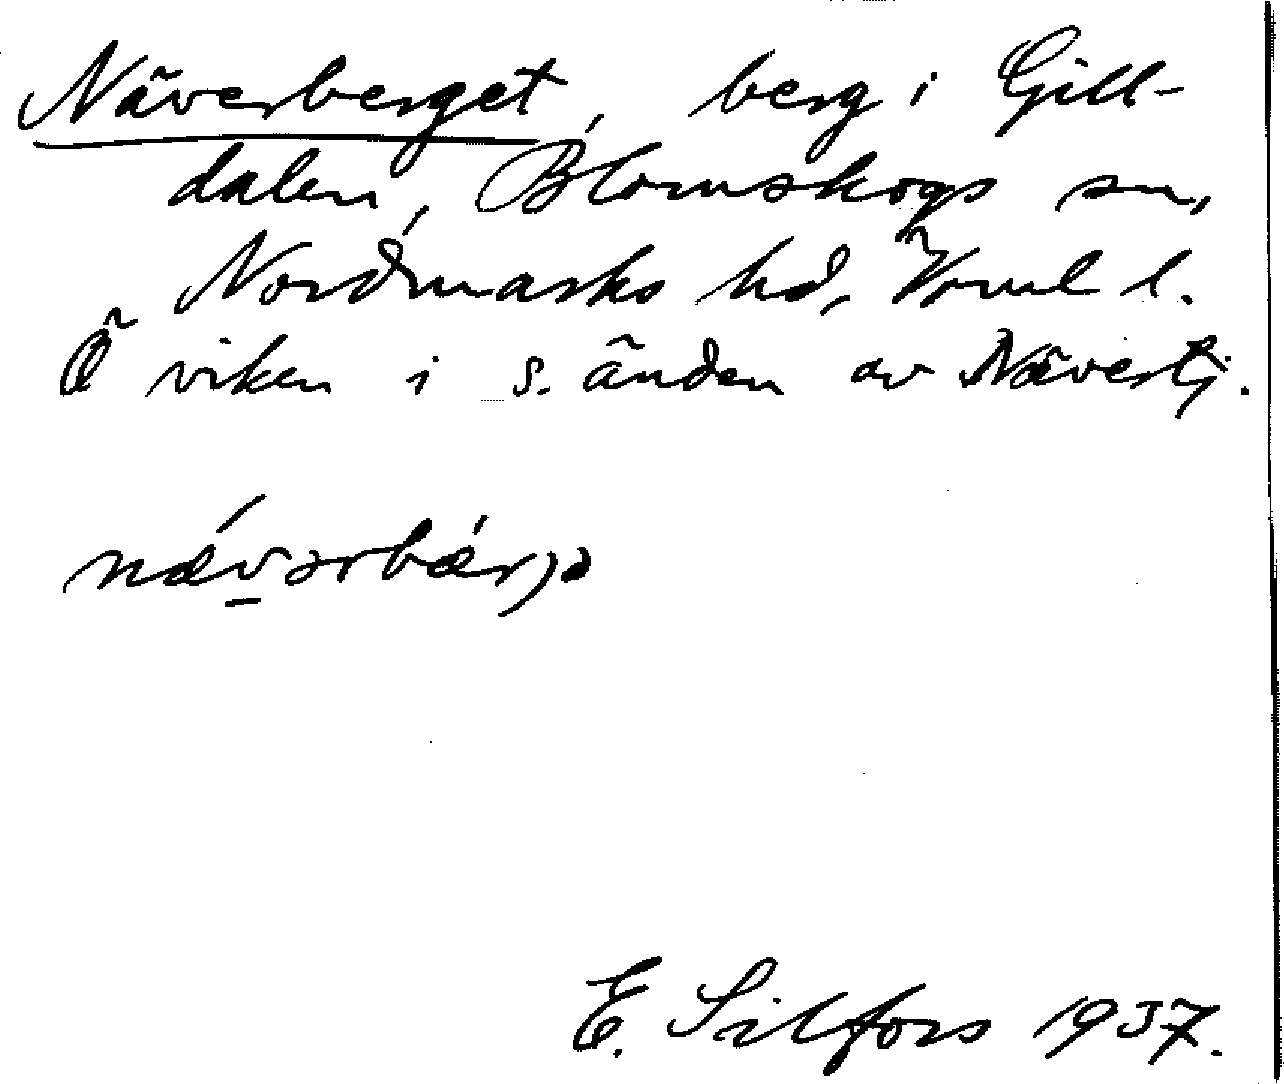 Näverberget, berg i Gill-
dalen, Blomskogs sn,
Nordmarks hd, Värml l.
Ö viken i S. änden av Nävertj.
nǽvərbǽrjə
E. Silfors 1937.